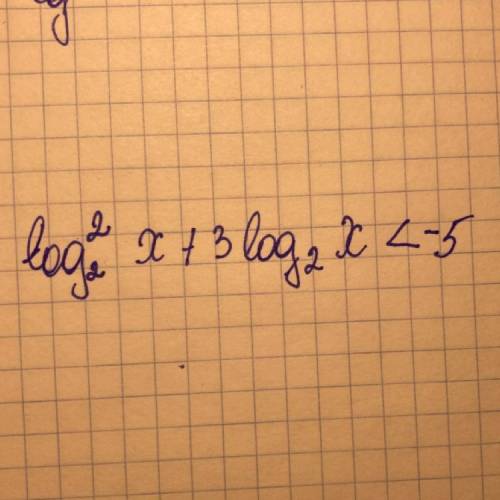 log₂² x + 3 log₂ x < -5